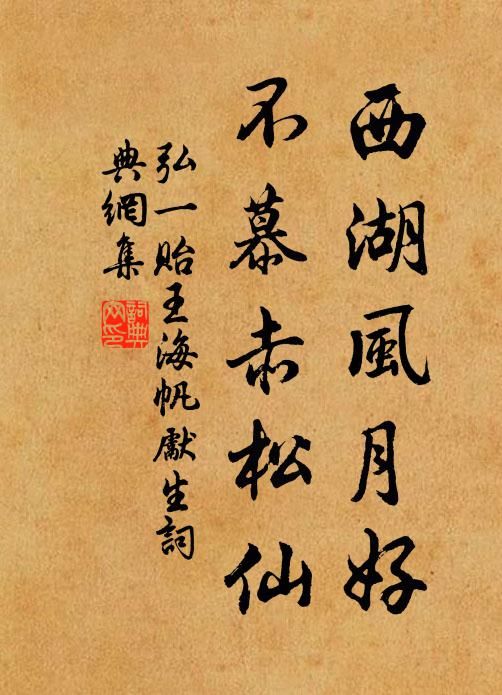 西湖風月好
不慕赤松仙
弘一貽王海帆獻生詞
典網集
詞典
网印